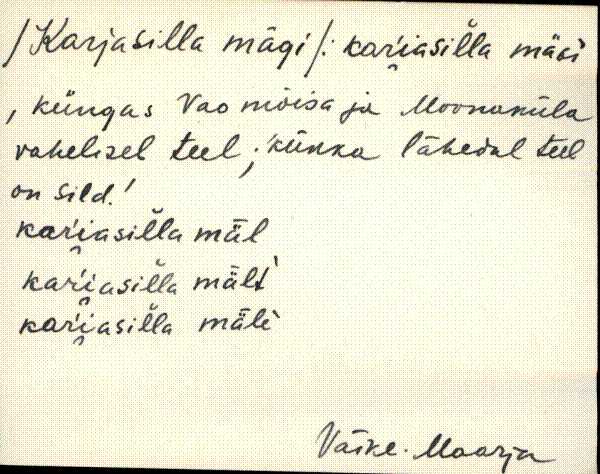 /Karjasilla mägi/: kar'i̯asĭlla mäGì
, küngas Vao mõisa ja Moonaküla
vahelisel teel; 'künka lähedal teel
on sild.'
kar'i̯asĭlla mäl
kar'i̯asĭlla mält
kar'i̯asĭlla mäle
Väike-Maarja